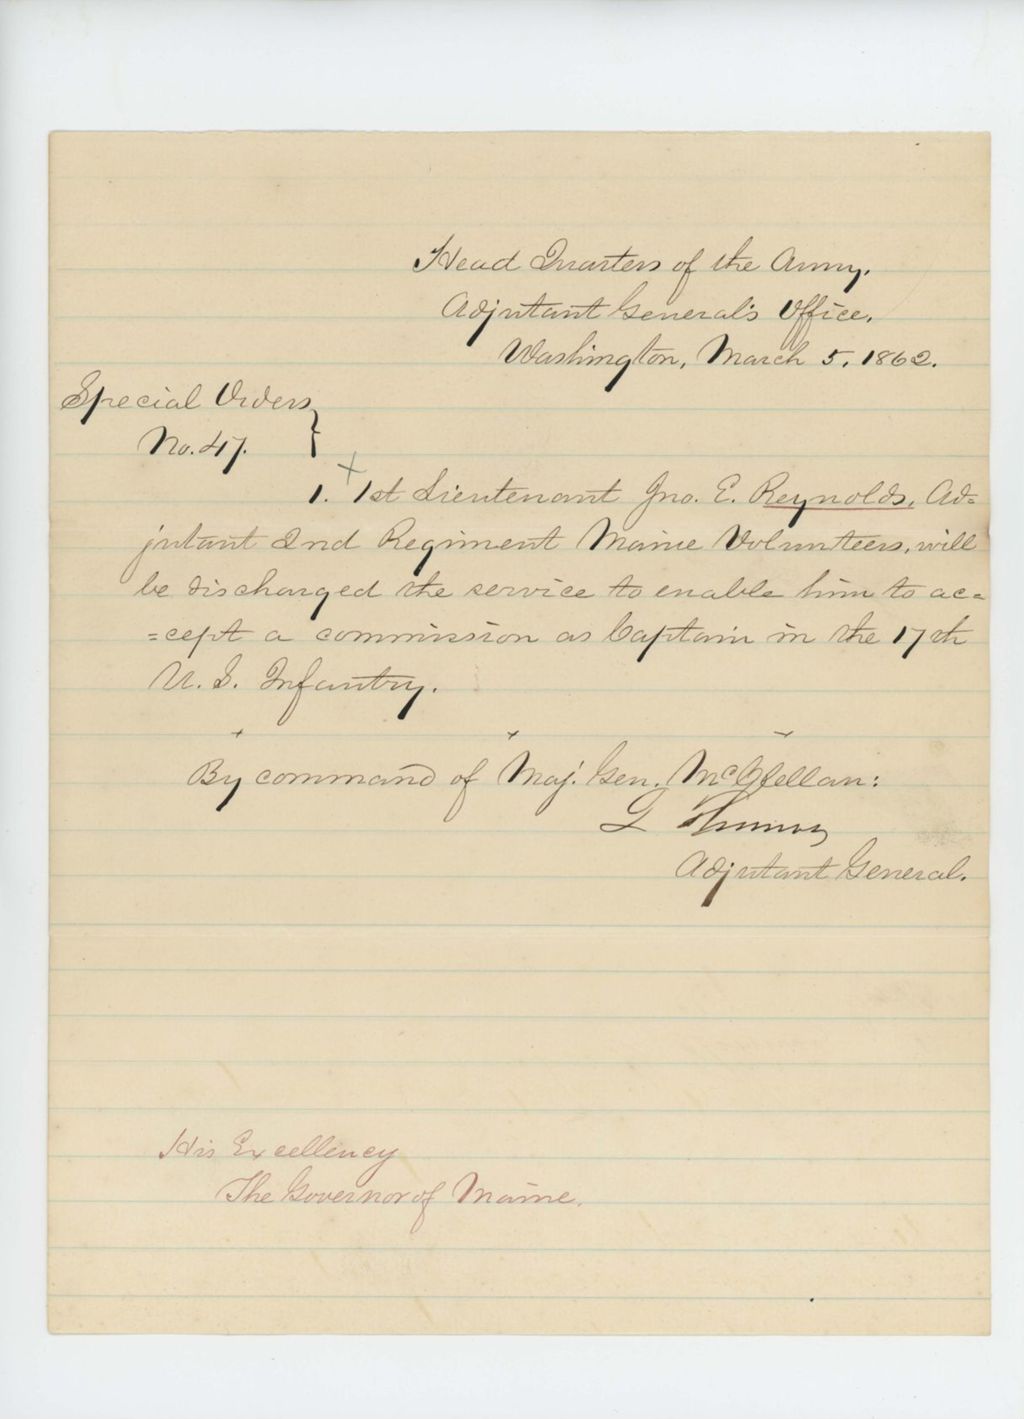 Head Quarters of the Army,
Adjutant General's Office,
Washington, March 5, 1862.
Special Orders }
No. 47.
1. 1st Lieutenant Jno. E. Reynolds, Ad=
jutant 2nd Regiment Maine Volunteers, will
be discharged the service to enable him to ac=
=cept a commission as Captain in the 17th
U.S. Infantry.
+ + +
By command of Maj. Gen. McClellan:
L Thomas
Adjutant General.
His Excellency
The Governor of Maine.